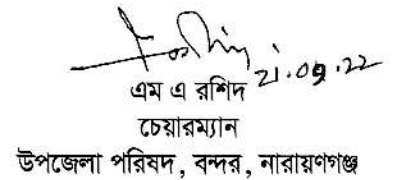 21.09.22
এম এ রশিদ
চেয়ারম্যান
উপজেলা পরিষদ, বন্দর, নারায়ণগঞ্জ